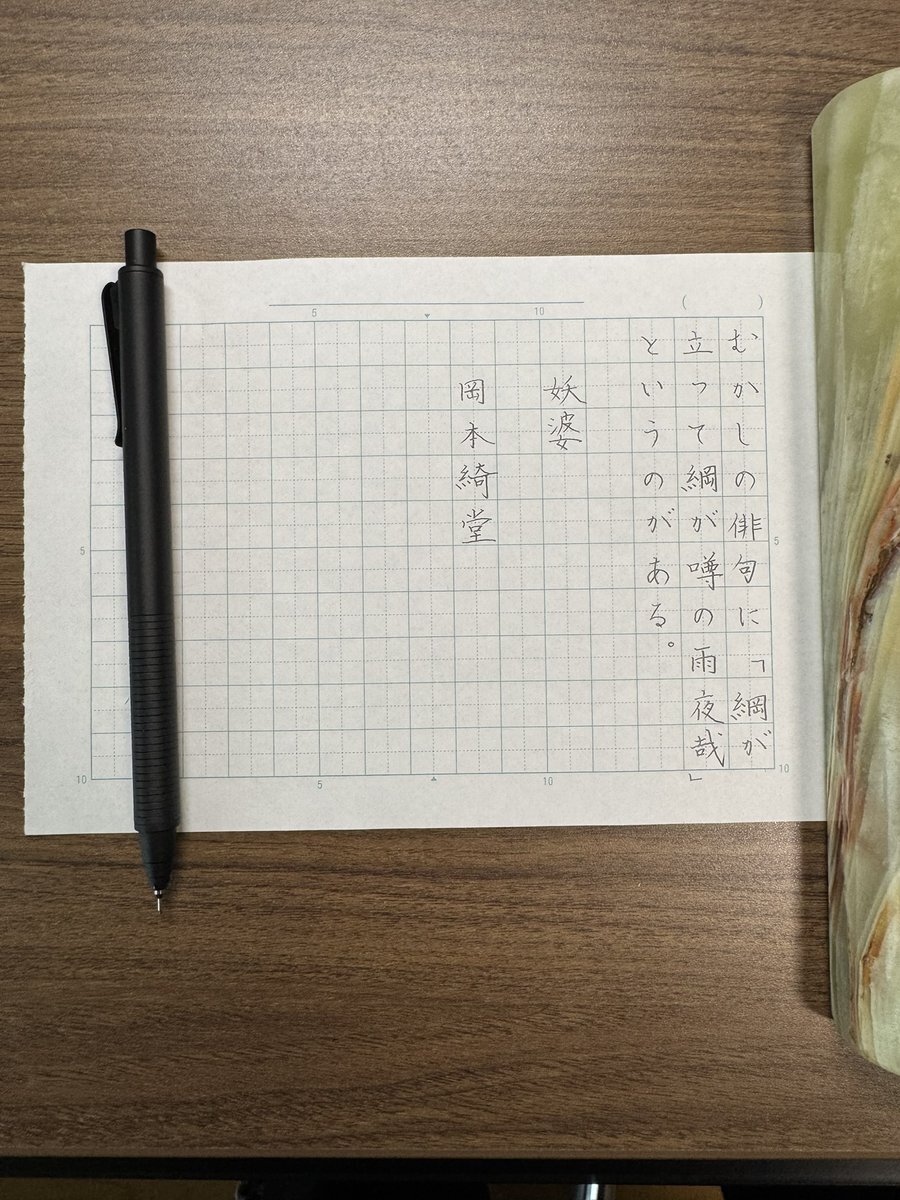 むかしの俳句に「綱が
立って綱が噂の雨夜哉」
というのがある。
妖婆
岡本綺堂
( )
5
10
5
10
5
10
5
10